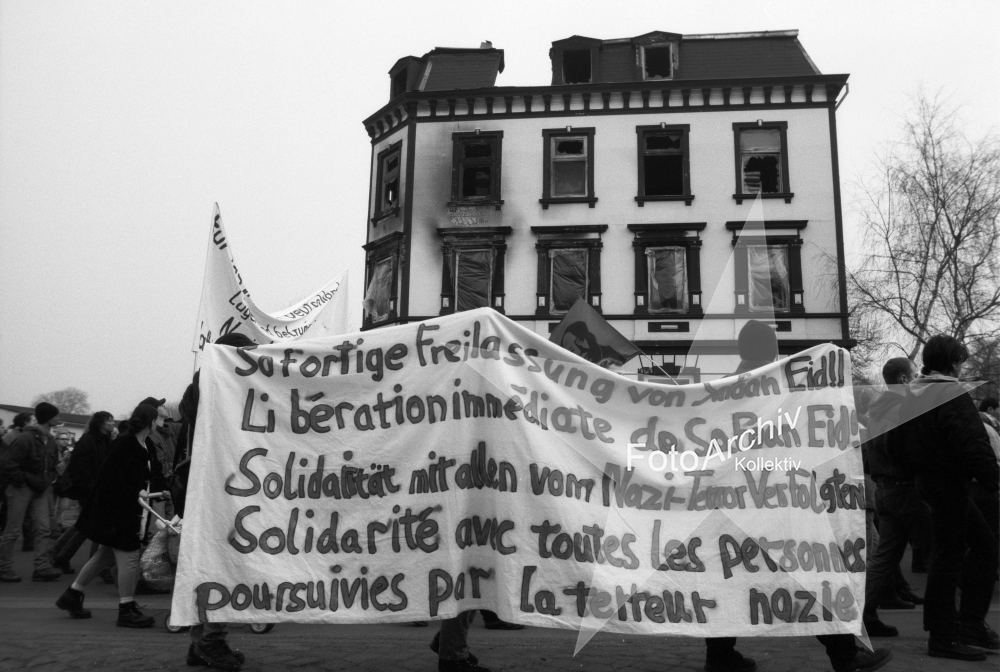 Sofortige Freilassung von Safwan Eid!!
Libération immédiate de Safwan Eid!
Solidalität mit allen vom Nazi-Terror Verfolgten
Solidarité avec toutes les personnes
poursuivies par la terreur nazie
FotoArchiv
Kollektiv